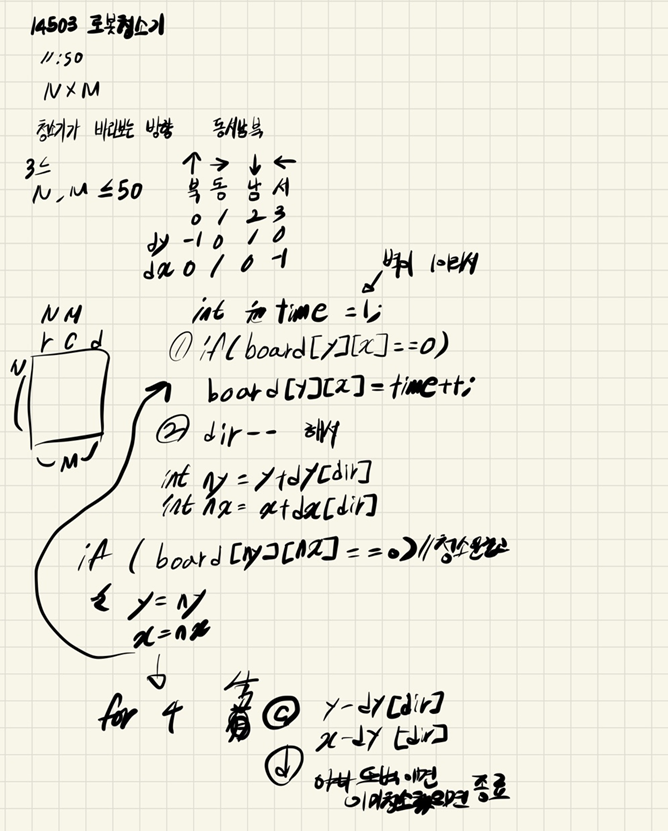 14503 로봇청소기
11:50
N×M
청소기가 바라보는 방향 동서남북
3≤
N, M ≤50
↑ → ↓ ←
북 동 남 서
0 1 2 3
dy -1 0 1 0
dx 0 1 0 -1
벽이 1이라서
int time = 1;
N M
r c d
N
M
① if(board[y][x]==0)
board[y][x]=time++;
② dir-- 해서
int ny = y+dy[dir]
int nx = x+dx[dir]
if ( board[ny][nx]==0) //청소
y=ny
x=nx
for 4
ⓒ y-dy[dir]
x-dy[dir]
ⓓ 이면
이미청소 면 종료